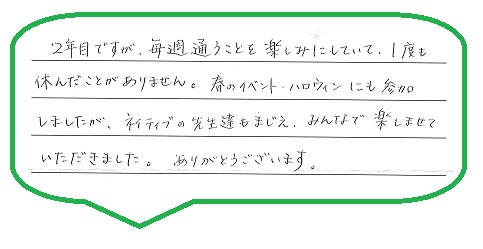 2年目ですが、毎週通うことを楽しみにしていて、1度も
休んだことがありません。春のイベント・ハロウィンにも参加
しましたが、ネイティブの先生達もまじえ、みんなで楽しませて
いただきました。ありがとうございます。